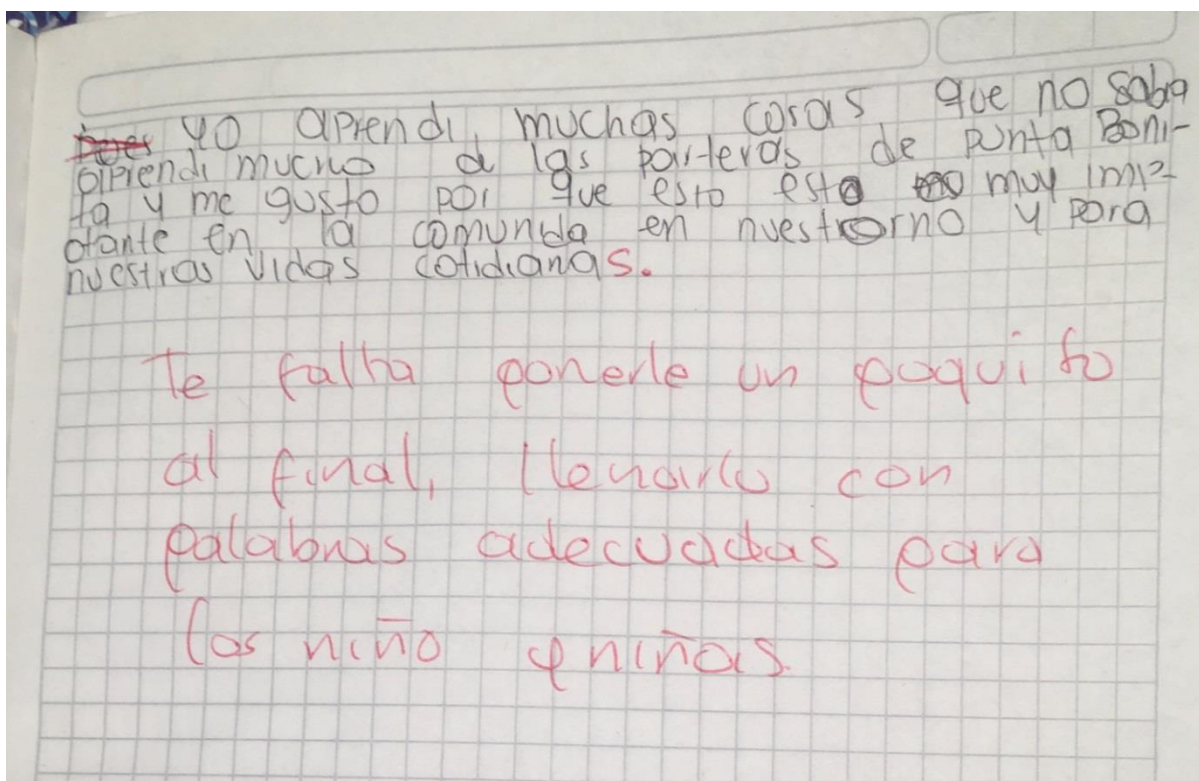 yo aprendi muchas cosas que no sabia
aprendi mucho d las parteras de punta Boni-
ta y me gusto por que esto esta muy imp-
otante en la comunda en nuestrorno y para
nuestras vidas cotidianas.
Te falta ponerle un poquito
al final, llenarlo con
palabras adecuadas para
los niño y niñas.